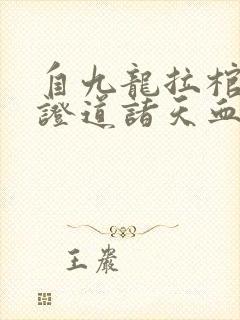 自九龍拉棺
證道諸天血
王嚴